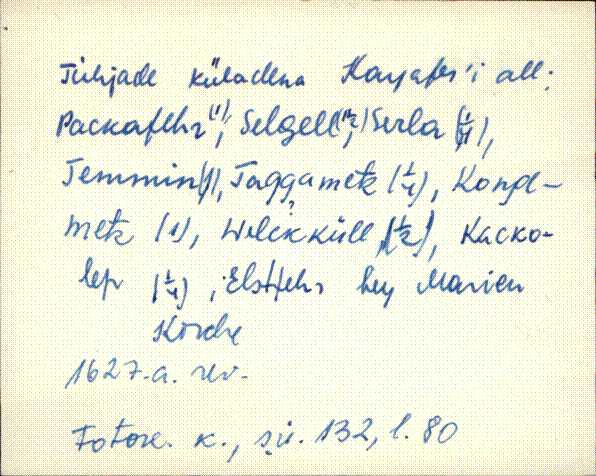 Tühjade küladena Kayafer'i all:
Packafehr (1), Selgell (1/2), Serla (1/4),
Temmin (1), Taggametz (1/4), Kongl-
metz (1), Wilckküll (1/2), Kacko-
lep (1/4), Elstfehr bey Marien
Kirche
1627. a. rev.
Fotore. k., sü. 132, l. 80